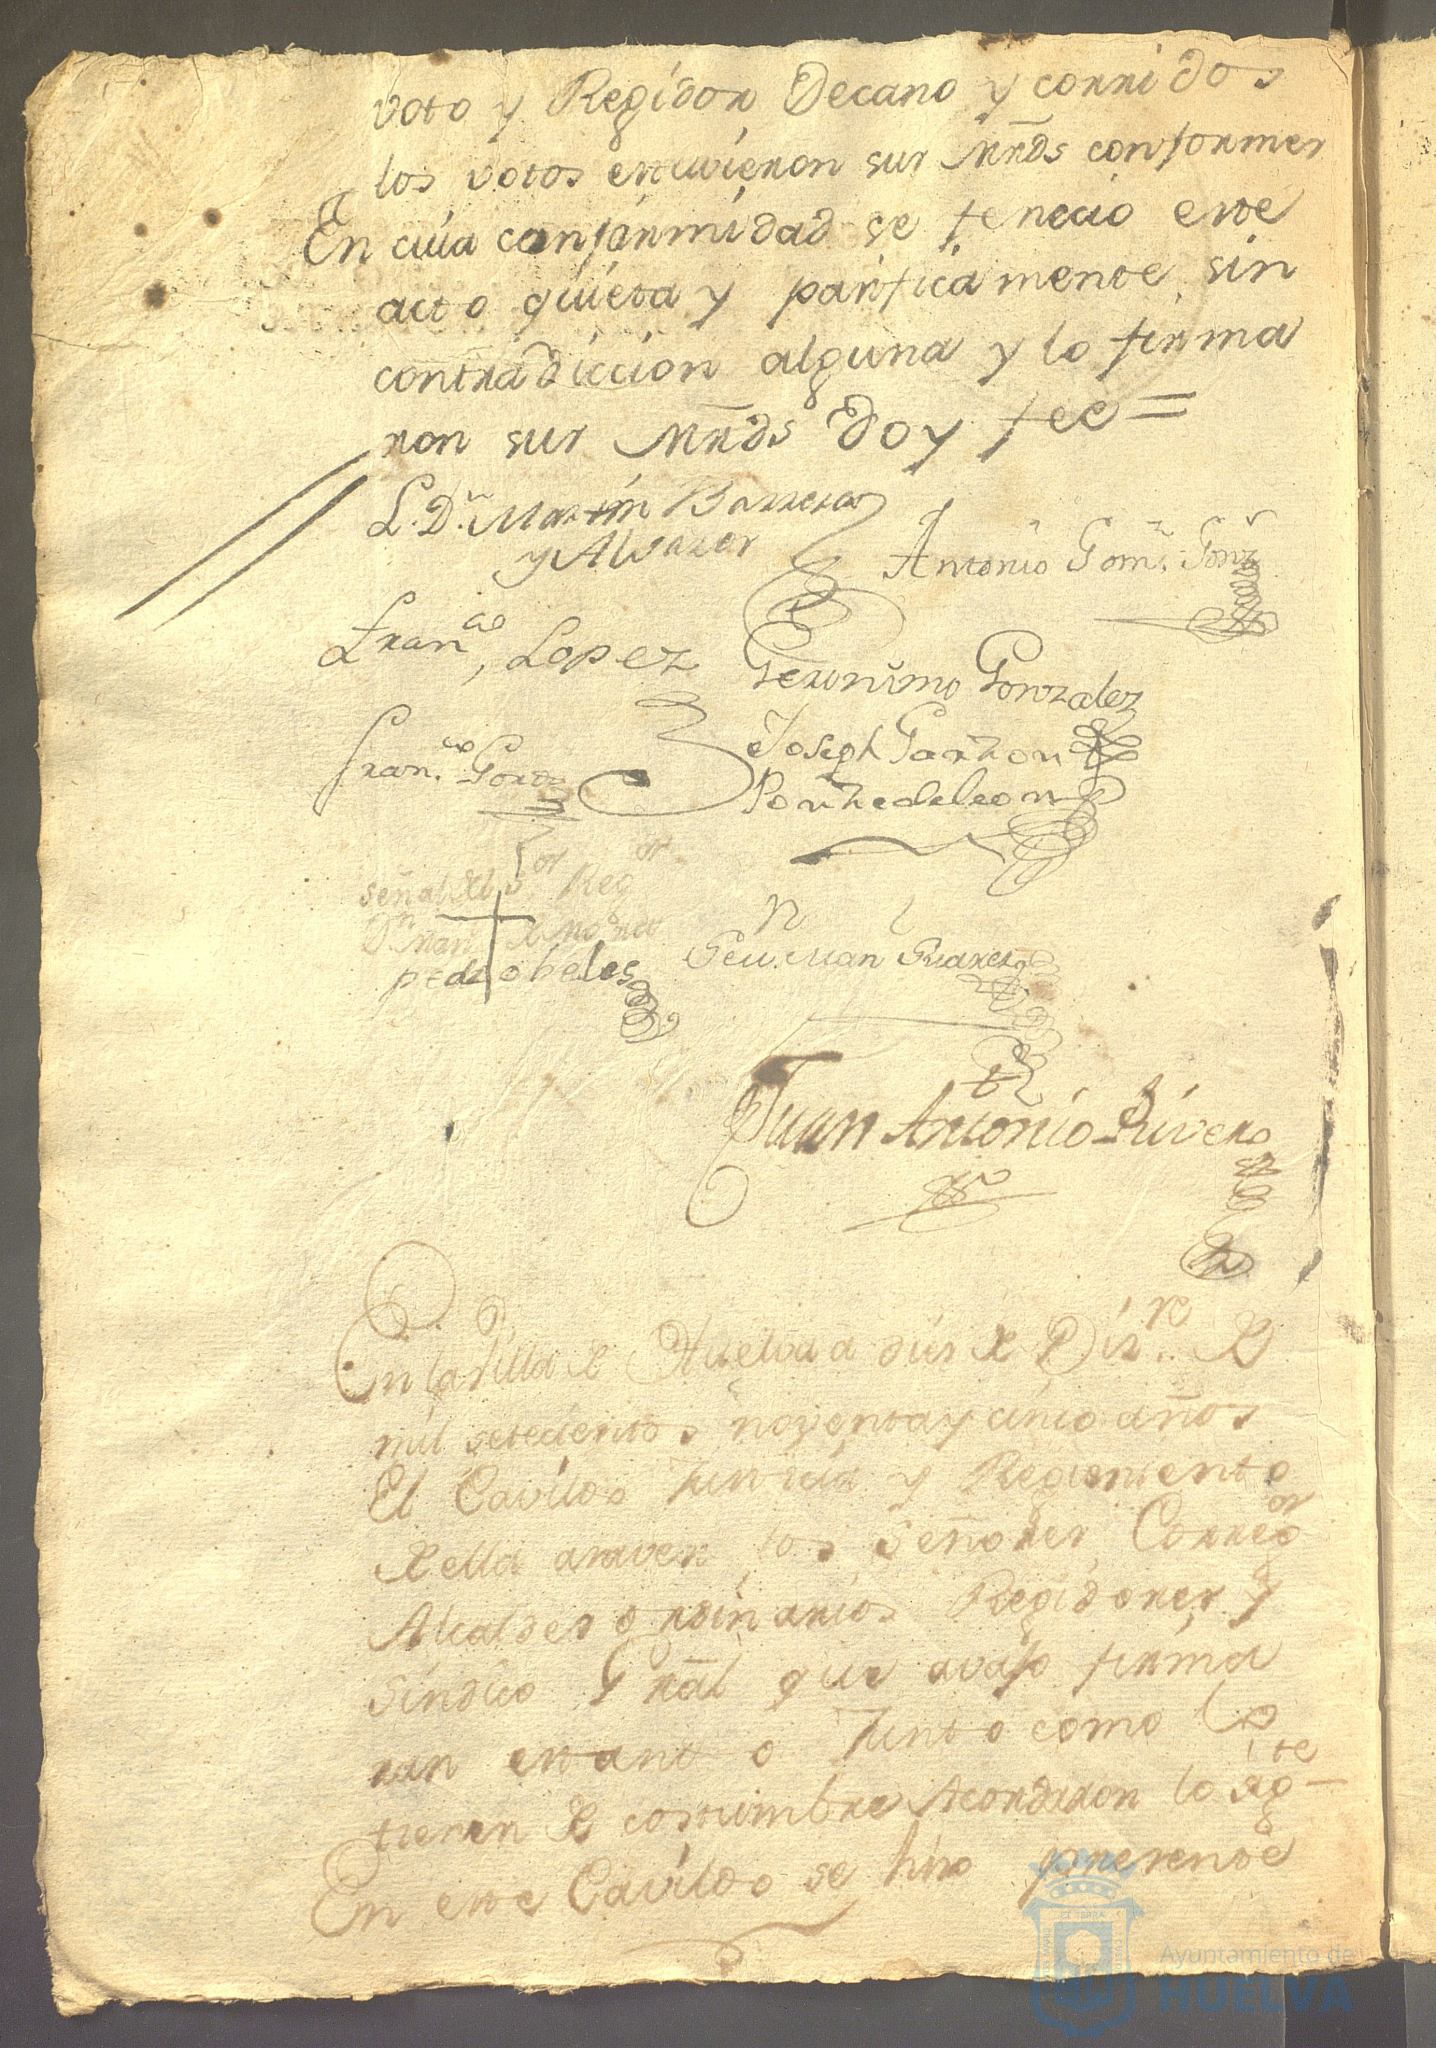 voto y Regidor Decano y corridos
los votos estuvieron sus Mrds conformes
En cuia conformidad se fenecio este
acto quieta y pacificamente sin
contradiccion alguna y lo firma
ron sus Mrds doy fee =
L. Dn. Martin Barrera
y Alvarez
Antonio Gomz. Gonz
Franco, Lopez
Geronimo Gonzalez
Franco. Gord
Joseph Garzon
Ponze de leon
señal del Sor Regor
Dn
pedro beles
Juan Suarez
Juan Antonio Rivero
En la Villa de Huelva a dies de Dizre. de
mil setecientos noventa y cinco años
El Cavildo Justicia y Regimiento
de ella a saver los señores Corregor
Alcaldes ordinarios Regidores y
sindico Gral que avajo firma
ran estando Junto como lo
tienen de costumbre Acordaron lo sigte
En este Cavildo se hizo presente
Ayuntamiento de
HUELVA